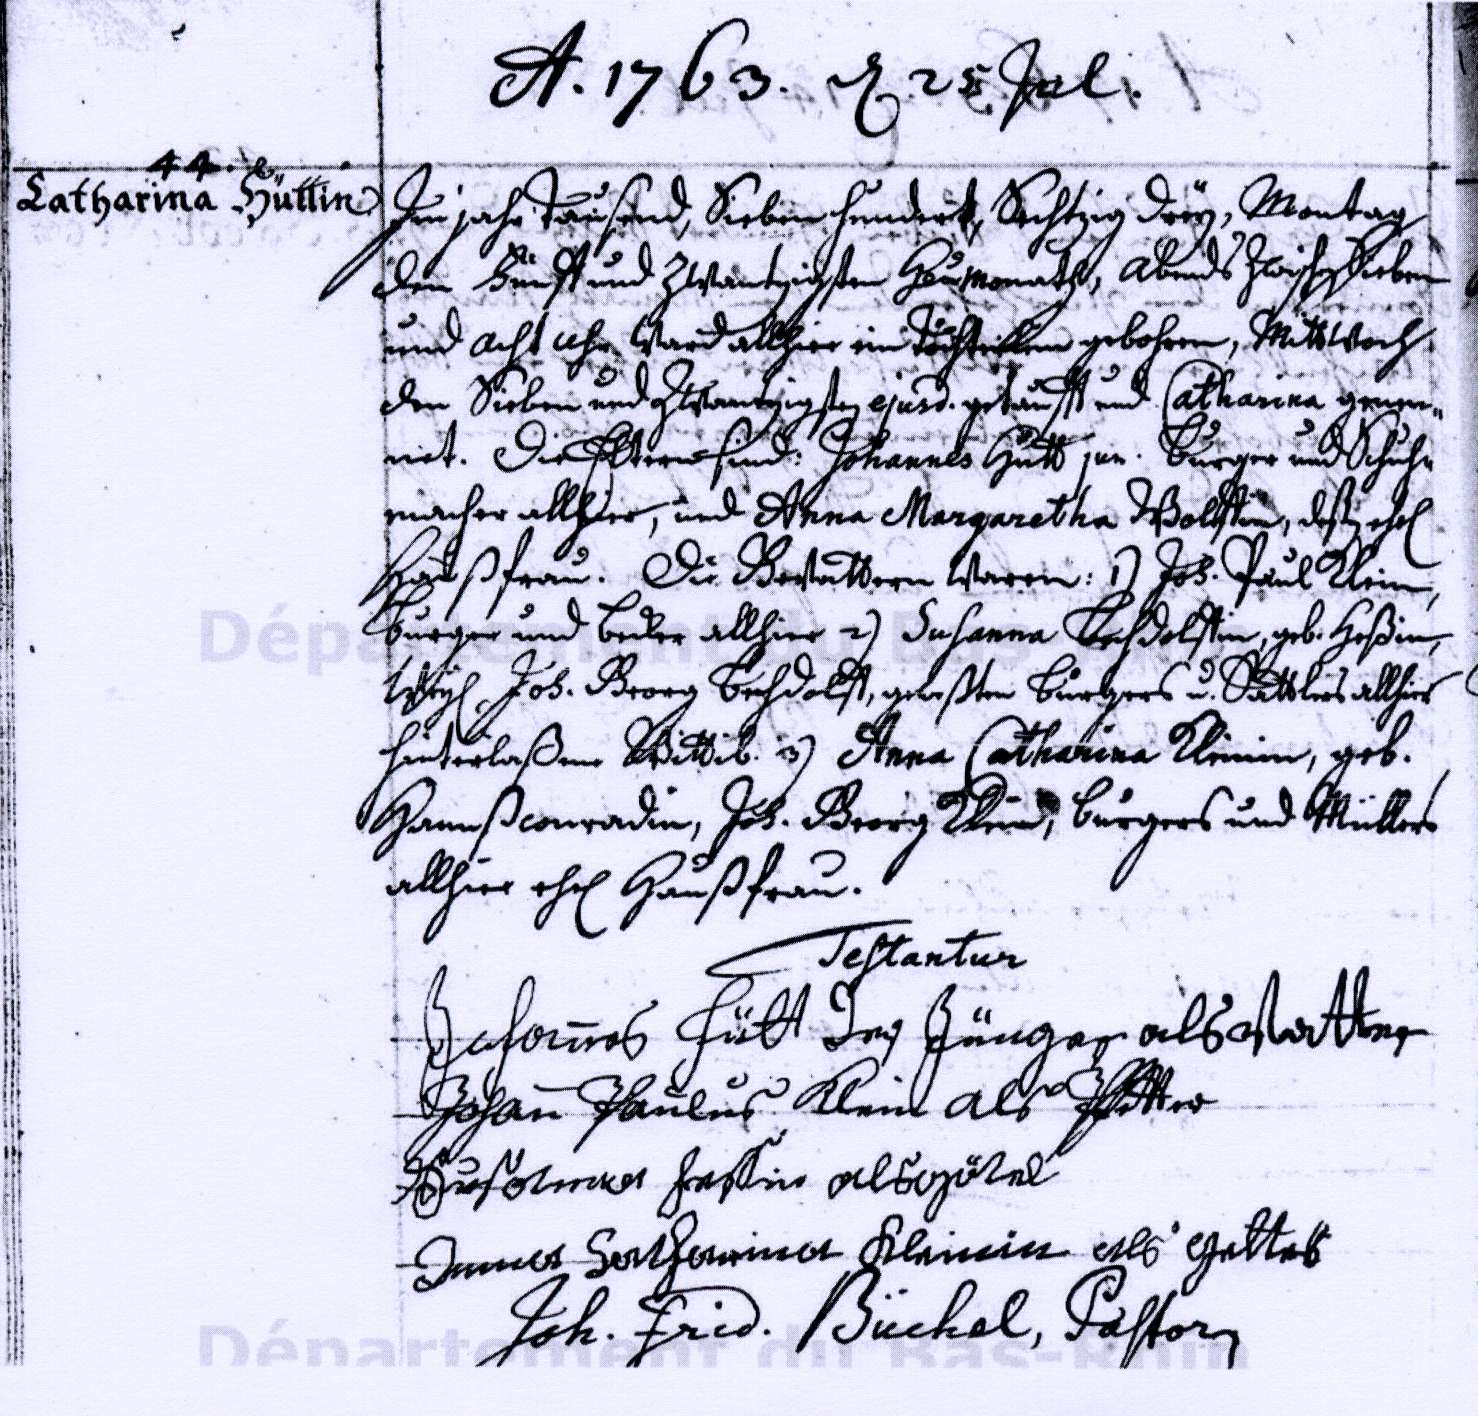 A. 1763. d. 25 Jul.
44.
Catharina Hüttin.
Im jahr Tausend, Sieben hundert, Sechtzig drey, Montag
den Fünff und Zwantzigsten Heumonaths, Abends zwischen Sieben
und acht Uhr ward allhier ein Töchterlein gebohren, Mittwoch
den Sieben und Zwantzigsten ejusd. getaufft und Catharina genen-
net. Die Eltern sind: Johannes Hütt jun. burger und Schuh-
macher allhier, und Anna Margaretha Wolffin, deßen ehel
Haußfrau. Die Gevattern waren: 1) Joh. Paul Klein,
burger und becker allhier 2) Susanna Bechdolffin, geb. Heßin,
Weyl. Joh. Georg Bechdolff, geweßten burgers u. Sattlers allhier
hinterlaßene Wittib. 3) Anna Catharina Kleinin, geb.
Hannßconradin, Joh. Georg Klein, burgers und Müllers
allhier ehel Haußfrau.
Testantur
Johannes Hütt der Jünger als Vatter
Johan Paulus Klein als Pfetter
Susanna Hessin als Götel
Anna Catharina Kleinin als Gettel
Joh. Frid. Büchel, Pastor
Département du Bas-Rhin
Département du Bas-Rhin